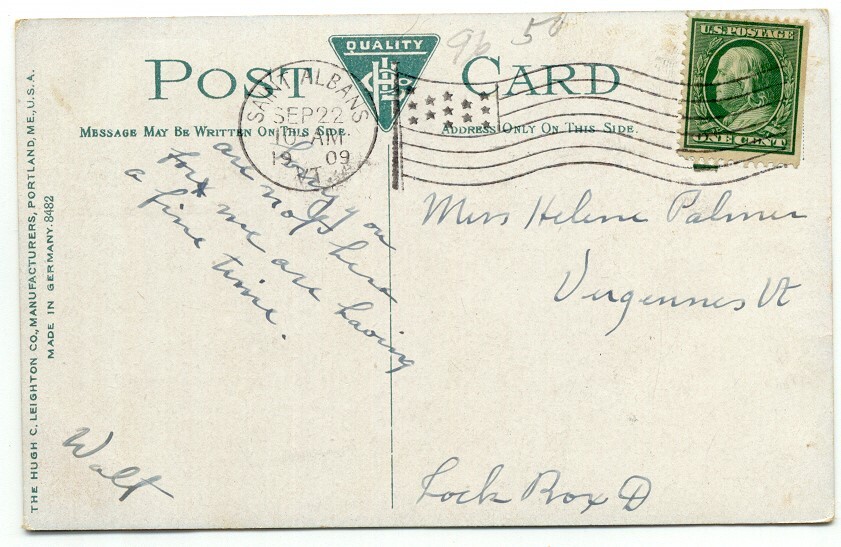 QUALITY
POST CARD
H L Co
96 50
U.S. POSTAGE
ONE CENT
SAINT ALBANS
SEP 22
10 AM
1909
VT.
MESSAGE MAY BE WRITTEN ON THIS SIDE.
ADDRESS ONLY ON THIS SIDE.
Sorry you
are not here
for we are having
a fine time.
Walt
Miss Helene Palmer
Vergennes Vt
Lock Box D
THE HUGH C. LEIGHTON CO., MANUFACTURERS, PORTLAND, ME., U.S.A.
MADE IN GERMANY. 8482